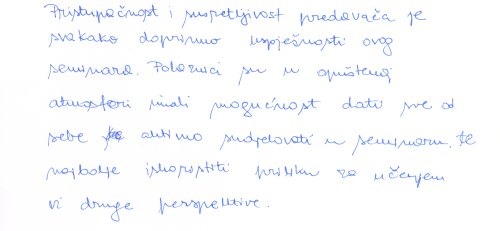 Pristupačnost i susretljivost predavača je
svakako doprinio uspješnosti ovog
seminara. Polaznici su u opuštenoj
atmosferi imali mogućnost dati sve od
sebe aktivno sudjelovati u seminaru, te
najbolje iskoristiti priliku za učenjem
iz druge perspektive.